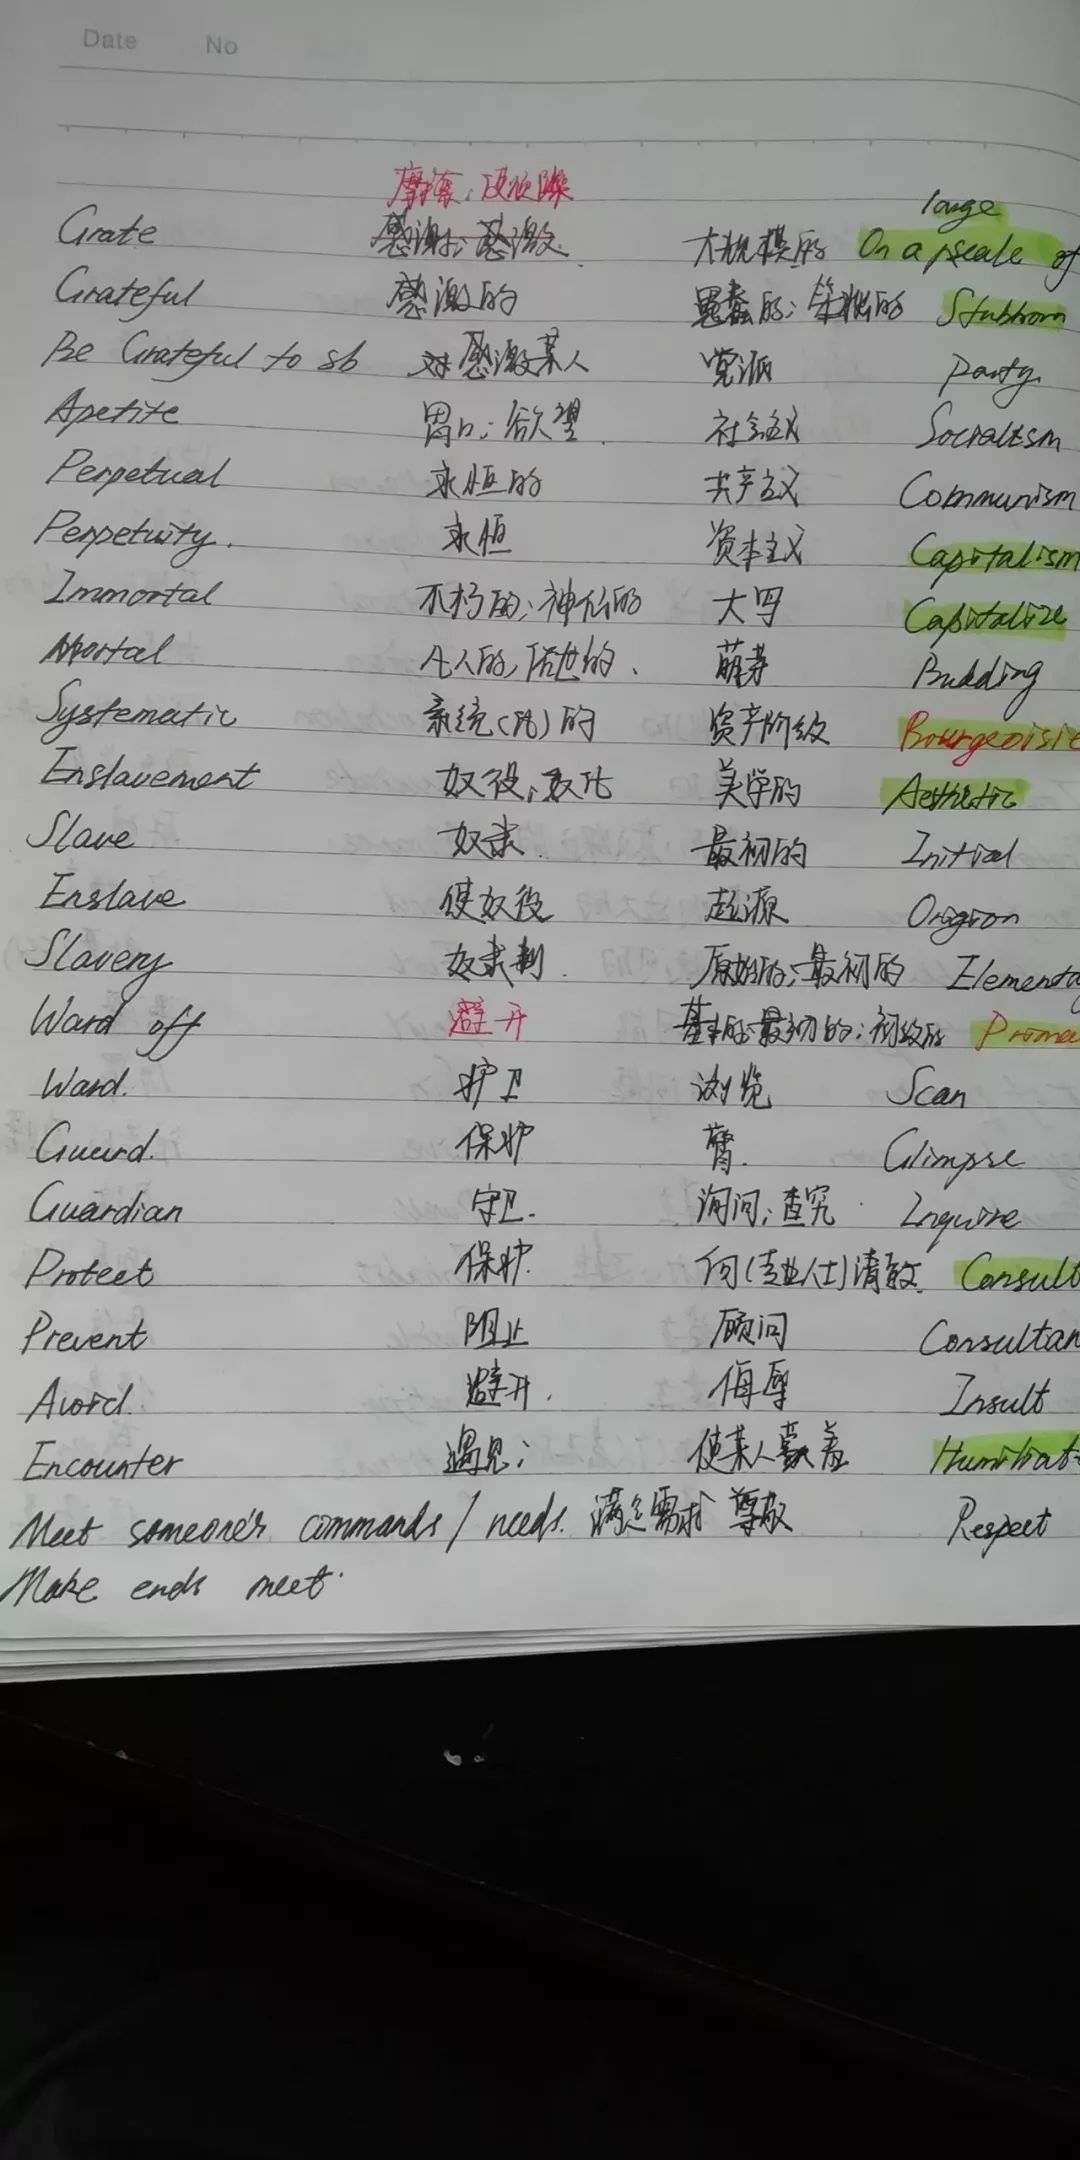 Date No
摩擦;使烦躁 large
Grate 感谢;感激 大规模的 On a scale of
Grateful 感激的 愚蠢的;笨拙的 Stubborn
Be Grateful to sb 对感激某人 党派 party
Apetite 胃口;欲望 社会主义 Socialism
Perpetual 永恒的 共产主义 Communism
Perpetuity. 永恒 资本主义 Capitalism
Immortal 不朽的;神仙的 大写 Capitalize
Mortal 凡人的, 的. 萌芽 Budding
Systematic 系统(化)的 资产阶级 Bourgeoisie
Enslavement 奴役; 美学的 Aesthetic
Slave 奴隶. 最初的 Initial
Enslave 使奴役 起源 Origion
Slavery 奴隶制. 原始的;最初的 Elementa
Ward off 避开 基本的;最初的;初级的
Ward. 护卫 浏览 Scan
Guard. 保护 瞥. Glimpse
Guardian 守卫. 询问;查究 Inquire
Protect 保护. 向(专业人士)请教. Consult
Prevent 阻止 顾问 Consultan
Avoid. 避开. 侮辱 Insult
Encounter 遇见; 使某人蒙羞 Humiliat
Meet someone's commands/needs. 满足需求 尊敬 Respect
Make ends meet.